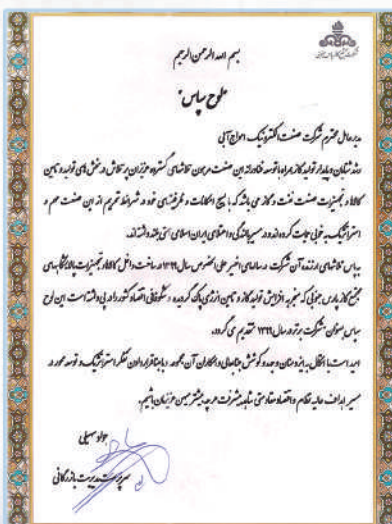 بسم الله الرحمن الرحیم
"لوح سپاس"
مدیرعامل محترم شرکت صنعت الکترونیک امواج آبی
رشد شتابان و پایدار تولید گاز همراه با توسعه فناورانه این صنعت مرهون تلاشهای گسترده عزیزان پر تلاش در بخش های تولید و تامین
کالا و تجهیزات صنعت نفت و گاز می باشد که با بسیج امکانات و ظرفیتهای خود در شرایط تحریم از این صنعت مهم و
استراتژیک به خوبی حمایت کرده اند و در مسیر بالندگی و اعتلای ایران اسلامی سعی بلیغ داشته اند.
به پاس تلاشهای ارزنده آن شرکت در سالهای اخیر علی الخصوص سال ۱۳۹۹ در ساخت داخل کالا و تجهیزات پالایشگاههای
مجتمع گاز پارس جنوبی که منجر به افزایش تولید گاز و تامین انرژی پاک گردیده و شکوفائی اقتصاد کشور را در پی داشته است این لوح
سپاس بعنوان شرکت برتر در سال ۱۳۹۹ تقدیم می گردد.
امید است با اتکال به ایزد منان و جد و کوشش جنابعالی و همکاران آن مجموعه و با بکار بردن تفکر استراتژیک و توسعه محور در
مسیر اهداف عالیه نظام و اقتصاد مقاومتی شاهد پیشرفت هر چه بیشتر میهن عزیزمان باشیم.
جواد سهیلی
سرپرست مدیریت بازرگانی